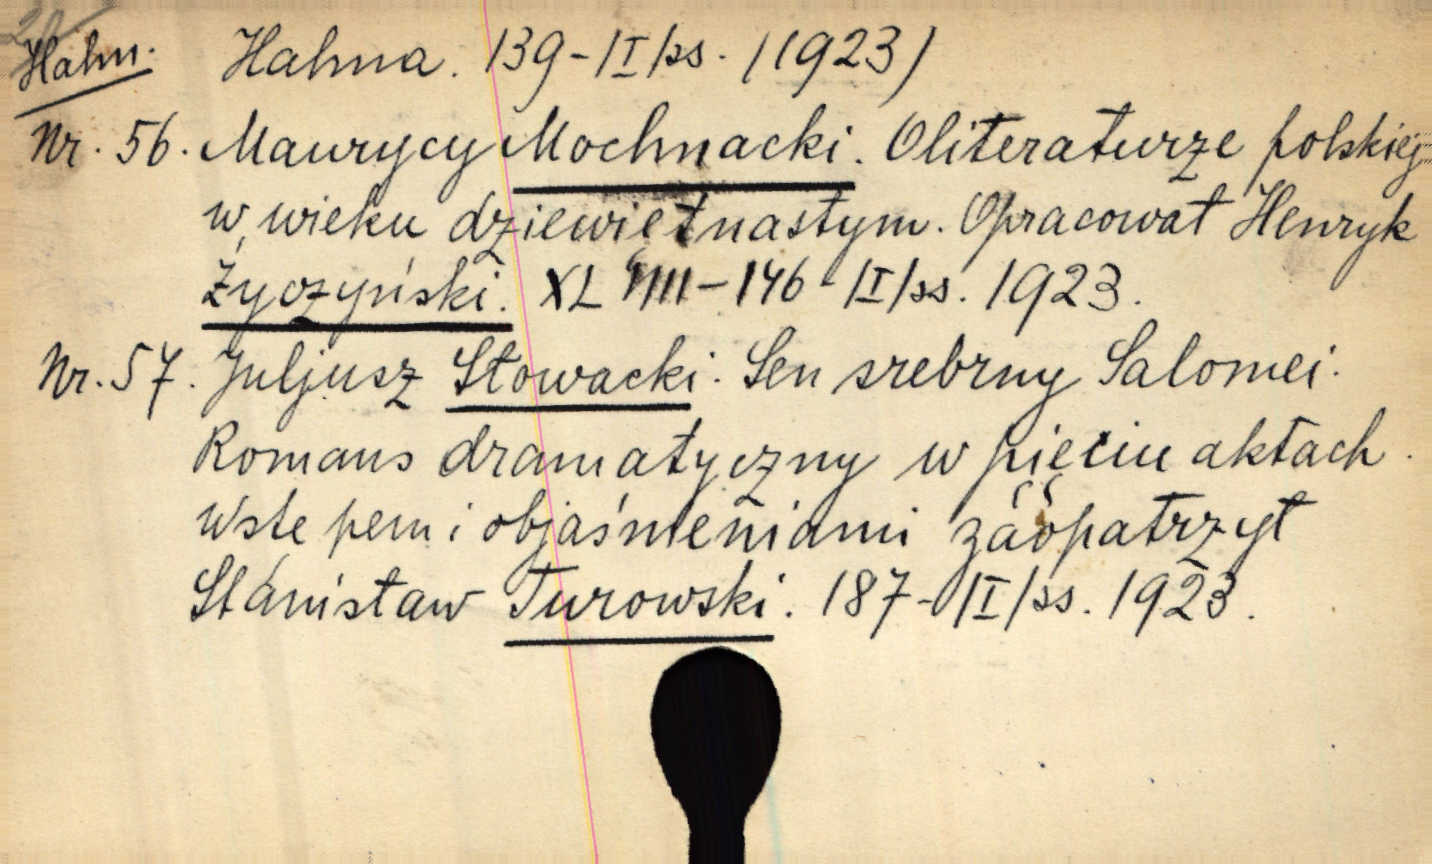 Hahn. Hahna. 139-|I|ss. (1923)
Nr. 56. Maurycy Mochnacki. O literaturze polskiej
w wieku dziewiętnastym. Opracował Henryk
Życzyński. XL VIII-146-|I|ss. 1923.
Nr. 57. Juljusz Słowacki. Sen srebrny Salomei.
Romans dramatyczny w pięciu aktach.
Wstępem i objaśnieniami zaopatrzył
Stanisław Turowski. 187-|I|ss. 1923.